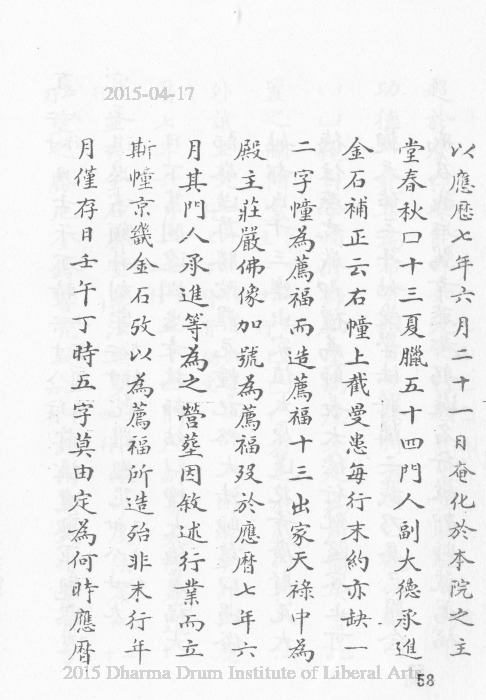 2015-04-17
以應曆七年六月二十一日奄化於本院之主
堂春秋口十三夏臘五十四門人副大德承進
金石補正云右幢上截曼患每行末約亦缺一
二字幢為薦福而造薦福十三出家天祿中為
殿主莊嚴佛像加號為薦福歿於應曆七年六
月其門人承進等為之營塟因敘述行業而立
斯幢京畿金石攷以為薦福所造殆非末行年
月僅存日壬午丁時五字莫由定為何時應曆
2015 Dharma Drum Institute of Liberal Arts
53